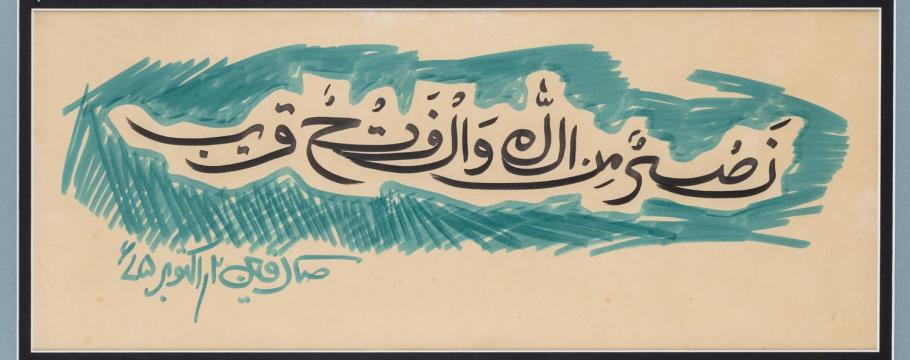 نَصْرٌ مِن اللّٰه وَالْفَتْحٌ قریب
صادقین ۲ اکتوبر ۷۵ء